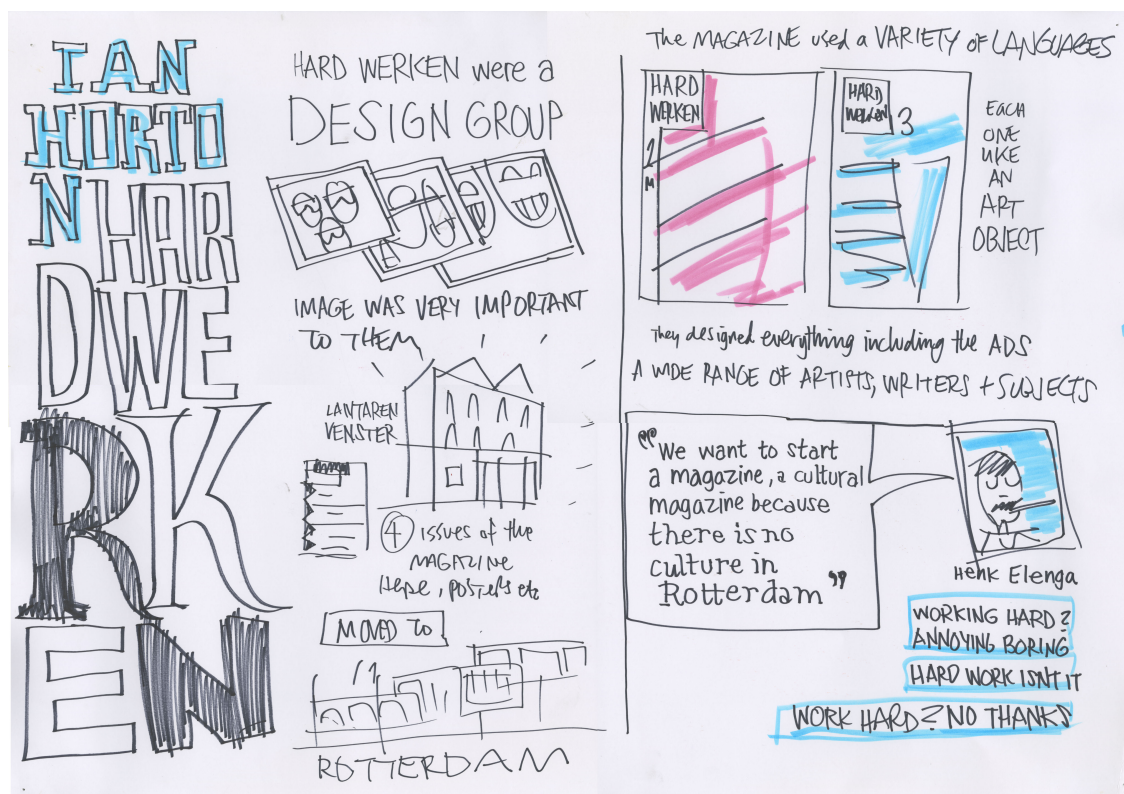 IAN
HORTO
N HAR
DWE
RK
EN
HARD WERKEN were a
DESIGN GROUP
IMAGE WAS VERY IMPORTANT
TO THEM
LANTAREN
VENSTER
4 ISSUES of the
MAGAZINE
HERE, POSTERS etc
MOVED TO
ROTTERDAM
The MAGAZINE used a VARIETY of LANGUAGES
HARD
WERKEN
1
HARD
WERKEN
3
EACH
ONE
LIKE
AN
ART
OBJECT
They designed everything including the ADS
A WIDE RANGE OF ARTISTS, WRITERS + SUBJECTS
"We want to start
a magazine, a cultural
magazine because
there is no
culture in
Rotterdam"
Henk Elenga
WORKING HARD?
ANNOYING BORING
HARD WORK ISNT IT
WORK HARD? NO THANKS